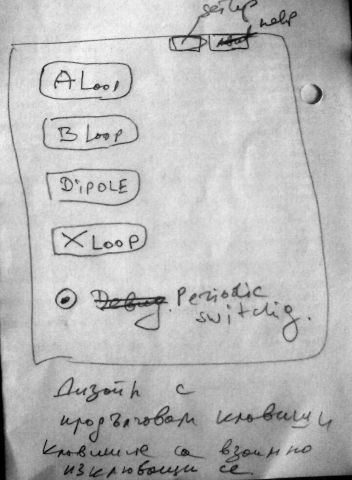 setup
help
A Loop
B Loop
DIPOLE
X Loop
Debug. Periodic
switchig.
Дизайн с
продълговати клавиши
Клавишите са взаимно
изключващи се.